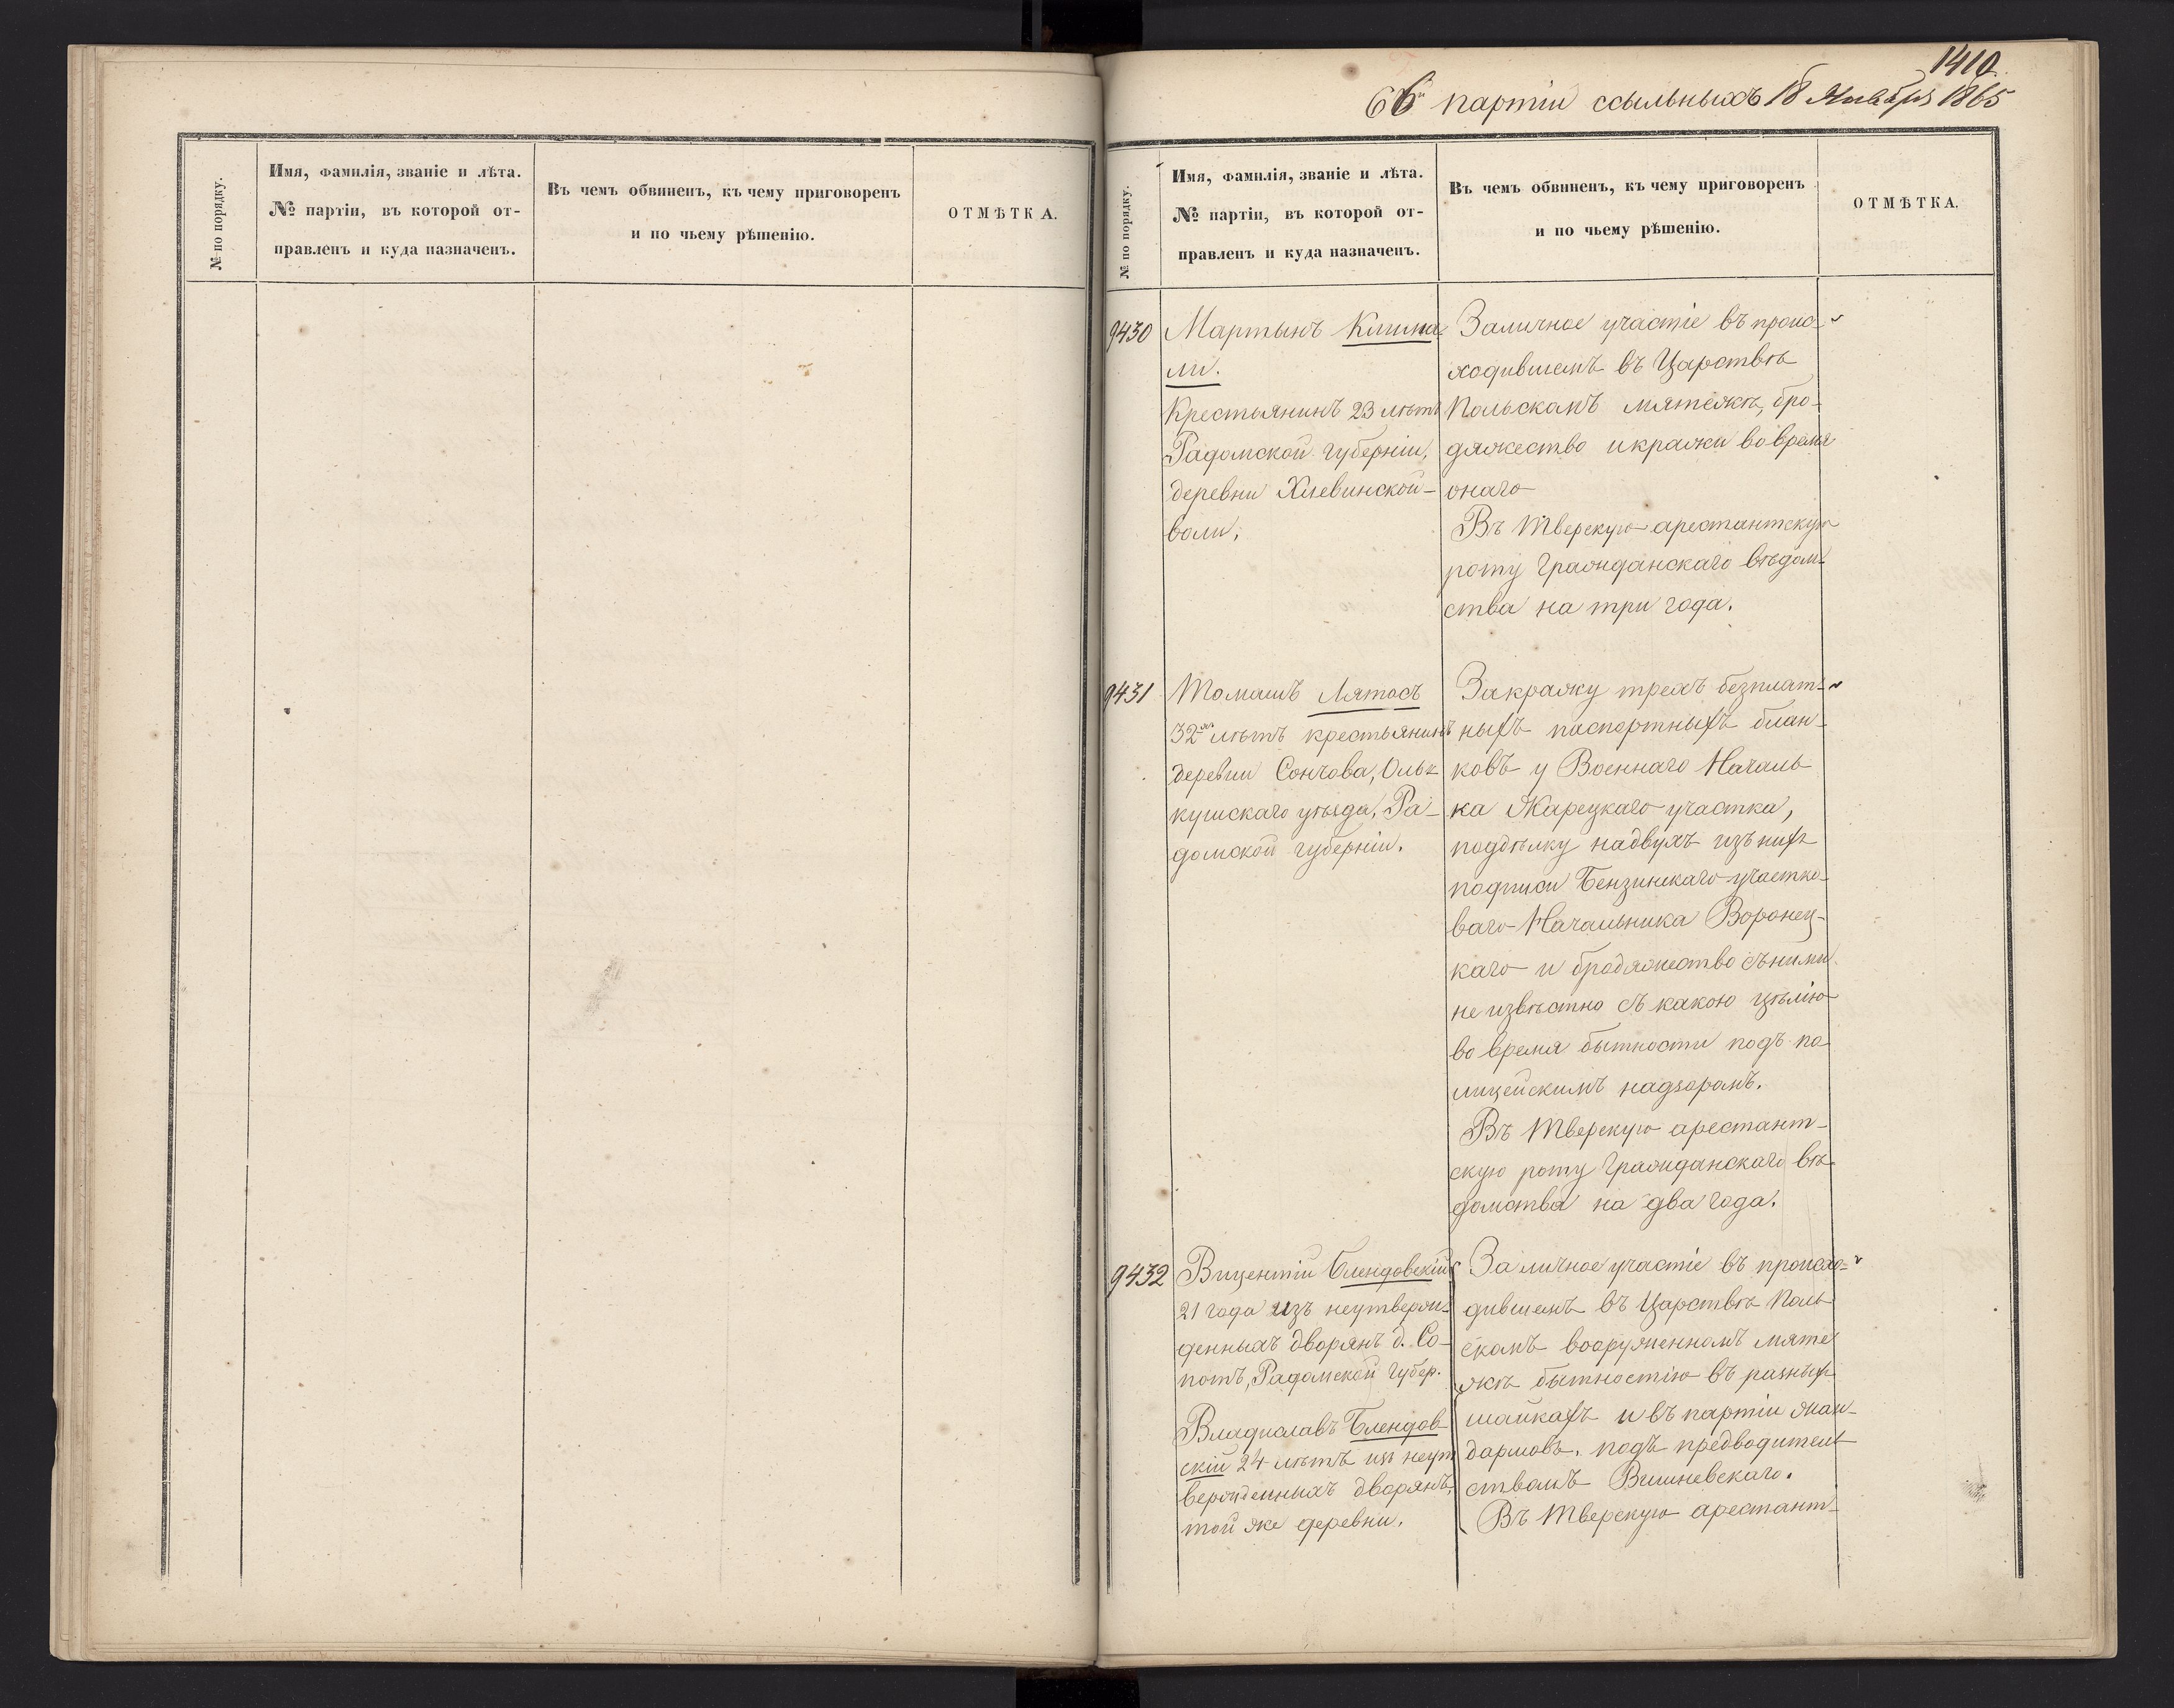 № по порядку.
Имя, фамилія, званіе и лѣта.
№ партіи, въ которой от-
правленъ и куда назначенъ.
Въ чемъ обвиненъ, къ чему приговоренъ
и по чьему рѣшенію.
ОТМѢТКА.
1410
66й партіи ссыльныхъ 18 Января 1865
№ по порядку.
Имя, фамилія, званіе и лѣта.
№ партіи, въ которой от-
правленъ и куда назначенъ.
Въ чемъ обвиненъ, къ чему приговоренъ
и по чьему рѣшенію.
ОТМѢТКА.
9430
Мартынъ
Крестьянинъ 23 лѣтъ
Радомской губерніи,
деревни Хлевинской-
воли,
За личное участіе въ проис-
ходившемъ въ Царствѣ
Польскомъ мятежѣ, бро-
дяжество и кражи во время
онаго
Въ Тверскую арестантскую
роту Гражданскаго вѣдом-
ства на три года.
9431
Томашъ Лятосъ
32хъ лѣтъ крестьянинъ
деревни Сончова, Оль-
кушскаго уѣзда, Ра-
домской губерніи.
За кражу трехъ безплат-
ныхъ паспортныхъ блан-
ковъ у Военнаго Началь-
ка Жарецкаго участка,
поддѣлку на двухъ изъ нихъ
подписи Бензинскаго участко-
ваго Начальника Воронец-
каго и бродяжество съ ними
не извѣстно съ какою цѣлію
во время бытности подъ по-
лицейскимъ надзоромъ.
Въ Тверскую арестант-
скую роту Гражданскаго вѣ-
домства на два года.
9432
Вицентій Блендовскій
21 года изъ неутверж-
денныхъ дворянъ д. Со-
потъ, Радомской Губер.
Владиславъ Блендов-
скій 24 лѣтъ изъ неут
вержденныхъ дворянъ,
той же деревни.
За личное участіе въ происхо-
дившемъ въ Царствѣ Поль-
скомъ вооруженномъ мяте
жѣ бытностію въ разныхъ
шайкахъ и въ партіи жан-
дармовъ, подъ предводитель
ствомъ Вишневскаго.
Въ Тверскую арестант-